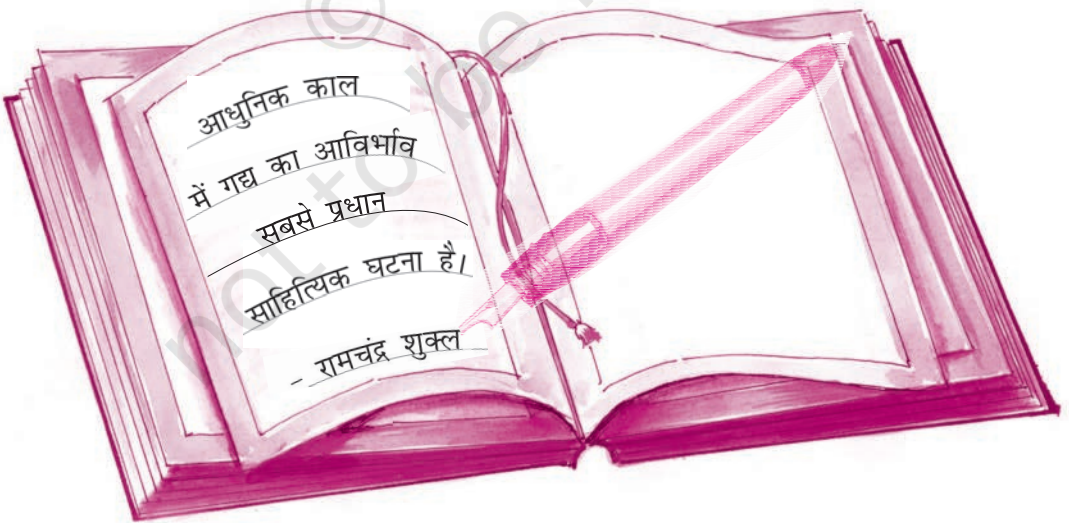 आधुनिक काल
में गद्य का आविर्भाव
सबसे प्रधान
साहित्यिक घटना है।
- रामचंद्र शुक्ल
©
not to be